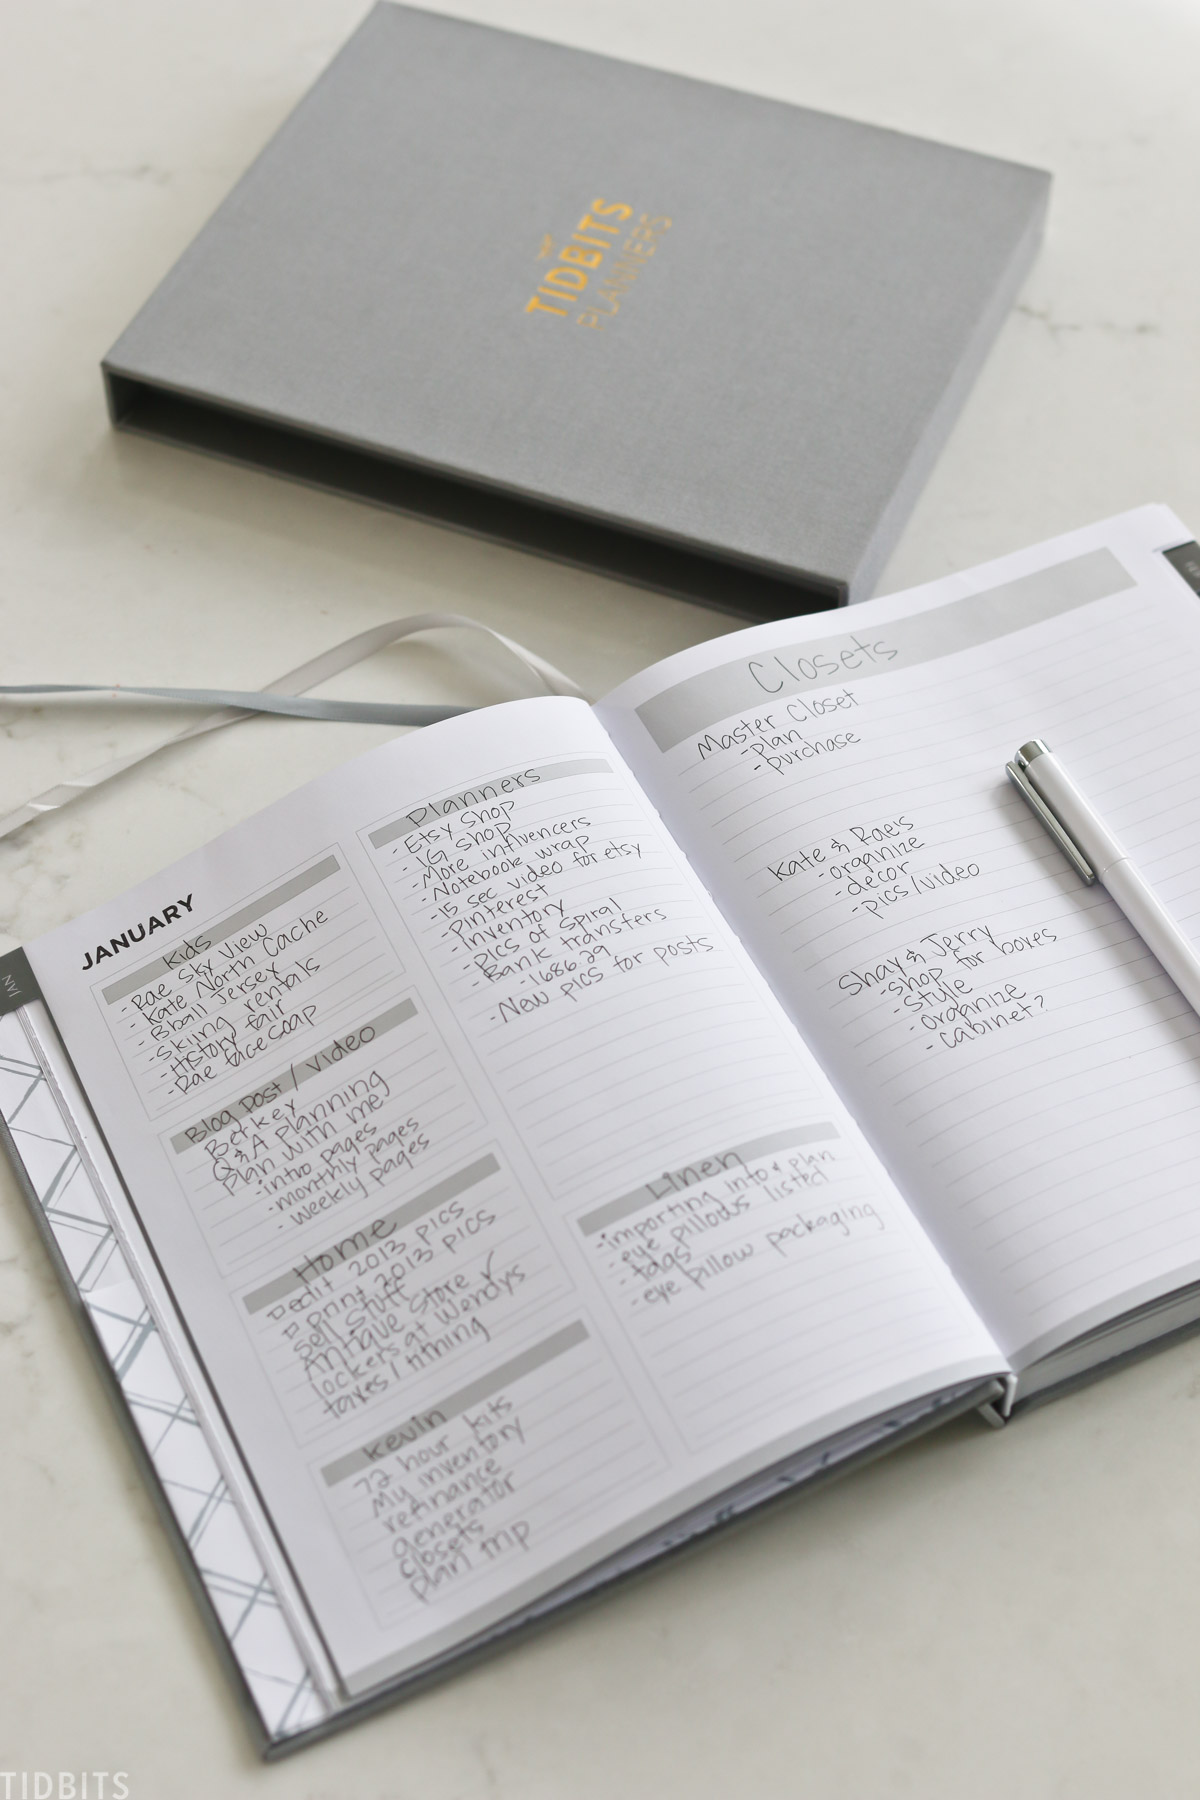 TIDBITS
PLANNERS
JAN
JANUARY
Kids
- Rae Sky View
- Kate North Cache
- Bball Jersey
- Skiing rentals
- History fair
- Rae face soap
Blog Post / Video
Berkey
Q & A planning
Plan with me
- intro pages
- monthly pages
- weekly pages
Home
edit 2013 pics
print 2013 pics
Sell Stuff
Antique Store ✓
lockers at Wendys
taxes / tithing
Kevin
72 hour kits
My inventory
refinance
generator
closets
plan trip
Planners
- Etsy Shop
- IG Shop
- More influencers
- Notebook wrap
- 15 sec video for etsy
- Pinterest
- Inventory
- Pics of spiral
- Bank transfers
- 1686.29
- New pics for posts
Linen
- importing info & plan
- eye pillows listed
- tags
- eye pillow packaging
Closets
Master Closet
- Plan
- purchase
Kate & Rae's
- organize
- decor
- pics / video
Shay & Jerry
- shop for boxes
- style
- organize
- cabinet?
TIDBITS